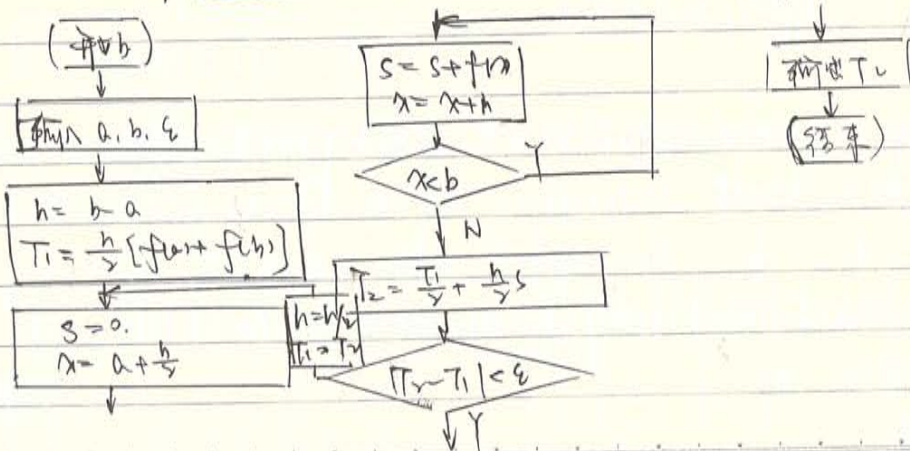 开始
输入 a, b, ε
h = b - a
T₁ = h/2 [f(a) + f(b)]
S = 0.
x = a + h/2
S = S + f(x)
x = x + h
x < b
Y
N
T₂ = T₁/2 + h/2 S
h = h/2
T₁ = T₂
|T₂ - T₁| < ε
Y
输出 T₂
(结束)